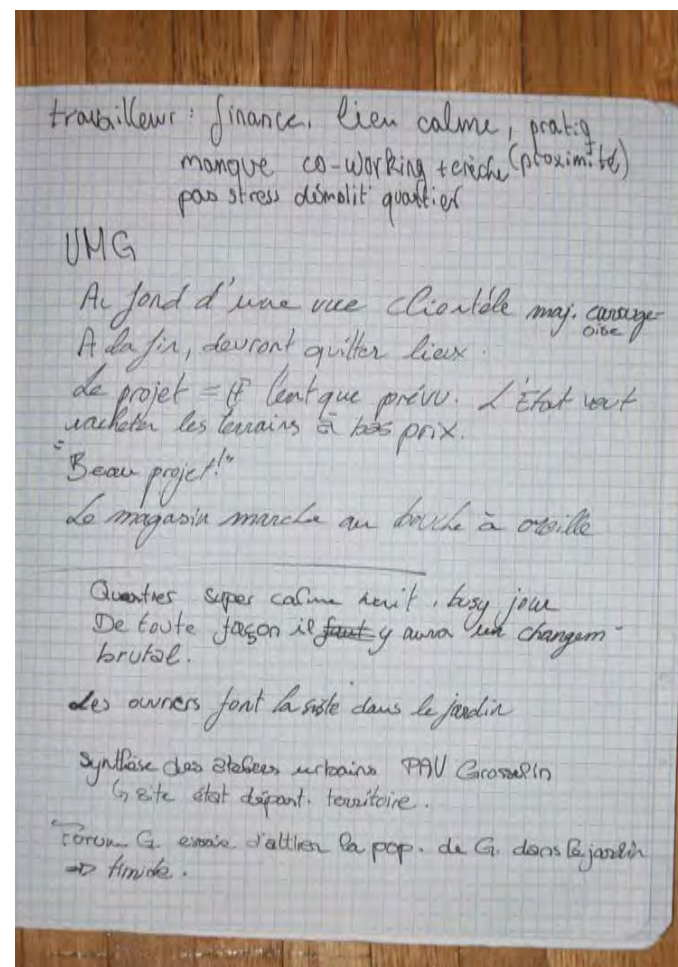 travailleur : finance, lieu calme, pratiq
manque co-working + crèche (proximité)
pas stress démolit quartier
UMG
Au fond d'une rue clientèle maj. carouge-
oise
A la fin, devront quitter lieux.
Le projet = + lent que prévu. L'État veut
racheter les terrains à bas prix.
"Beau projet!"
Le magasin marche au bouche à oreille
Quartier super calme nuit, busy jour
De toute façon il faut y aura un changem-
brutal.
Les ouvriers font la sieste dans le jardin
Synthèse des ateliers urbains PAV Grosselin
↳ site état départ. territoire.
Forum G. essaie d'attirer la pop. de G. dans le jardin
⇒ timide.